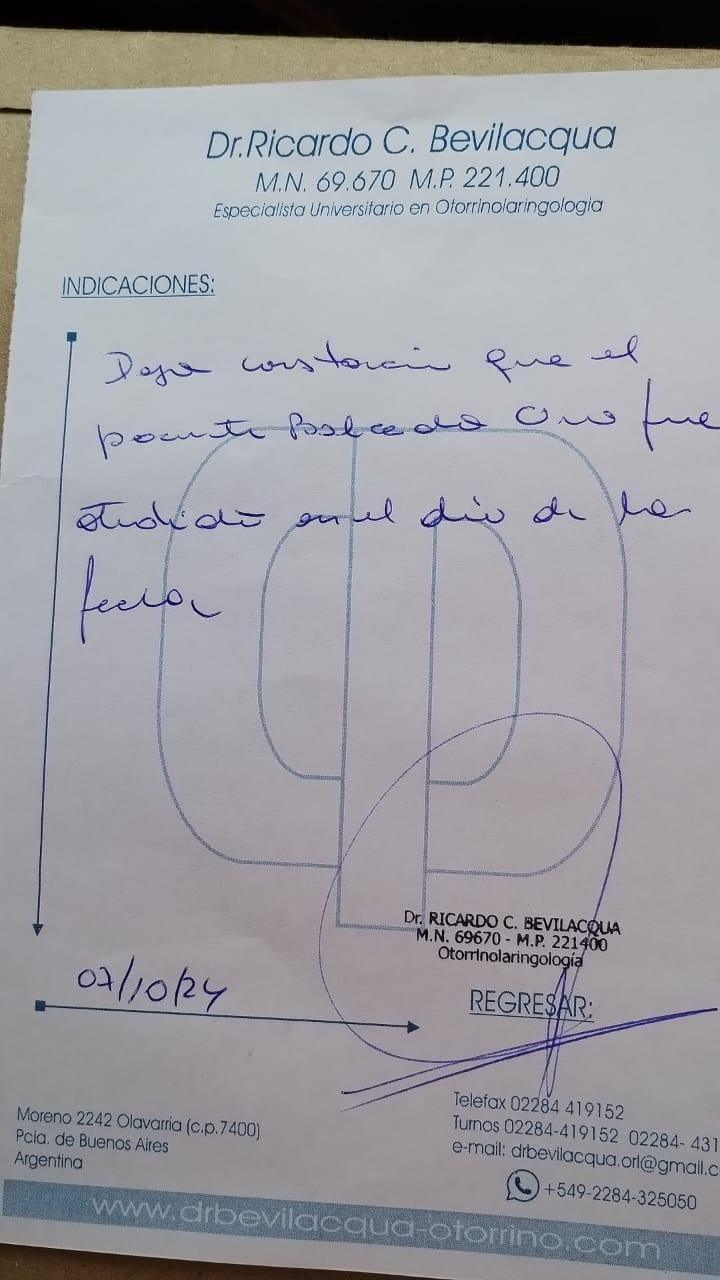 Dr.Ricardo C. Bevilacqua
M.N. 69.670 M.P. 221.400
Especialista Universitario en Otorrinolaringologia
INDICACIONES:
Dejo constancia que el
paciente fue
atendido en el día de la
fecha
Dr. RICARDO C. BEVILACQUA
M.N. 69670 - M.P. 221400
Otorrinolaringología
07/10/24
REGRESAR:
Moreno 2242 Olavarría (c.p.7400)
Pcia. de Buenos Aires
Argentina
Telefax 02284 419152
Turnos 02284-419152 02284- 431
e-mail: drbevilacqua.orl@gmail.c
+549-2284-325050
www.drbevilacqua-otorrino.com